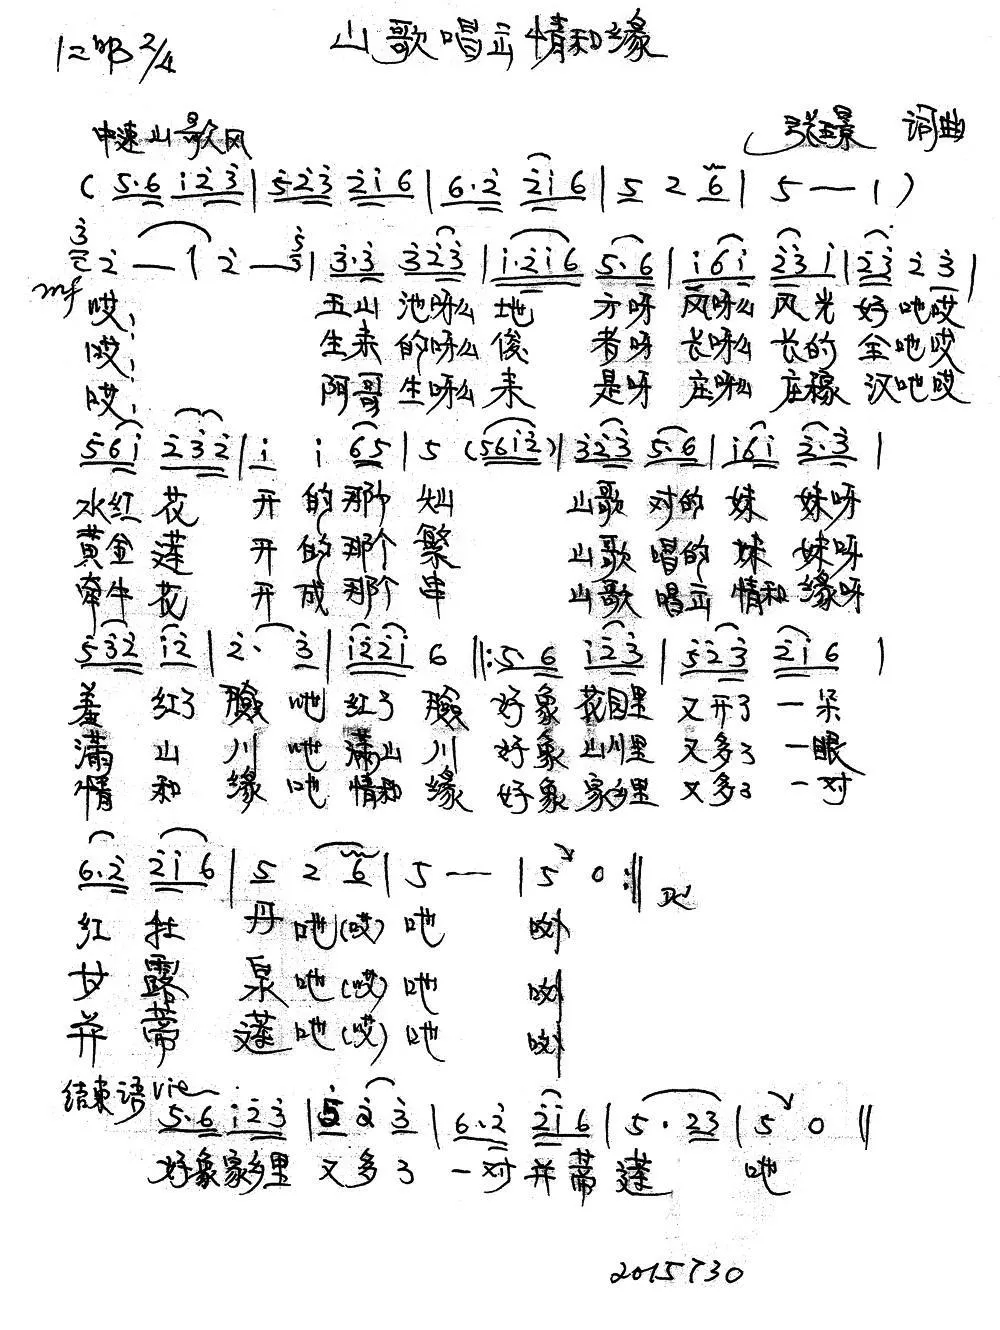 山歌唱立情和缘
1=♭B 2/4
中速山歌风
张景 词曲
( 5·6 i 2 3 | 5 2 3 2 i 6 | 6·2 2 i 6 | 5 2 6 | 5 — — 1 )
3 2 2 — 1 2 — 5 3 | 3·3 3 2 3 | i·2 i 6 5·6 | i 6 i 2 3 i | 2 3 2 3 |
mf
哎, 五山池呀么地 方呀 风呀么 风光 好吔哎
哎, 生来的呀么俊 者呀 长呀么 长的 全吔哎
哎, 阿哥生呀么来 是呀 庄呀么 庄稼 汉吔哎
5 6 i 2 3 2 | i i 6 5 | 5 (5 6 i 2) | 3 2 3 5·6 | i 6 i 2·3 |
水红花 开的那个灿 山歌对的妹妹呀
黄金莲 开的那个繁 山歌唱的妹妹呀
牵牛花 开成那个串 山歌唱立情和缘呀
5 3 2 i 2 | 2· 3 | i 2 2 i 6 ‖: 5·6 i 2 3 | 5 2 3 2 i 6 |
羞红了脸吔红了脸 好象花园里又开了一朵
满山川吔满山川 好象山川里又多了一眼
情和缘吔情和缘 好象家乡里又多了一对
6·2 2 i 6 | 5 2 6 | 5 — — | 5 0 :‖
红牡丹吔(哎)吔 呦
甘露泉吔(哎)吔 呦
并蒂莲吔(哎)吔 呦
结束语
5·6 i 2 3 | 5 2 3 | 6·2 2 i 6 | 5· 2 3 | 5 0 ‖
好象家乡里又多了一对并蒂莲 吔
2015730